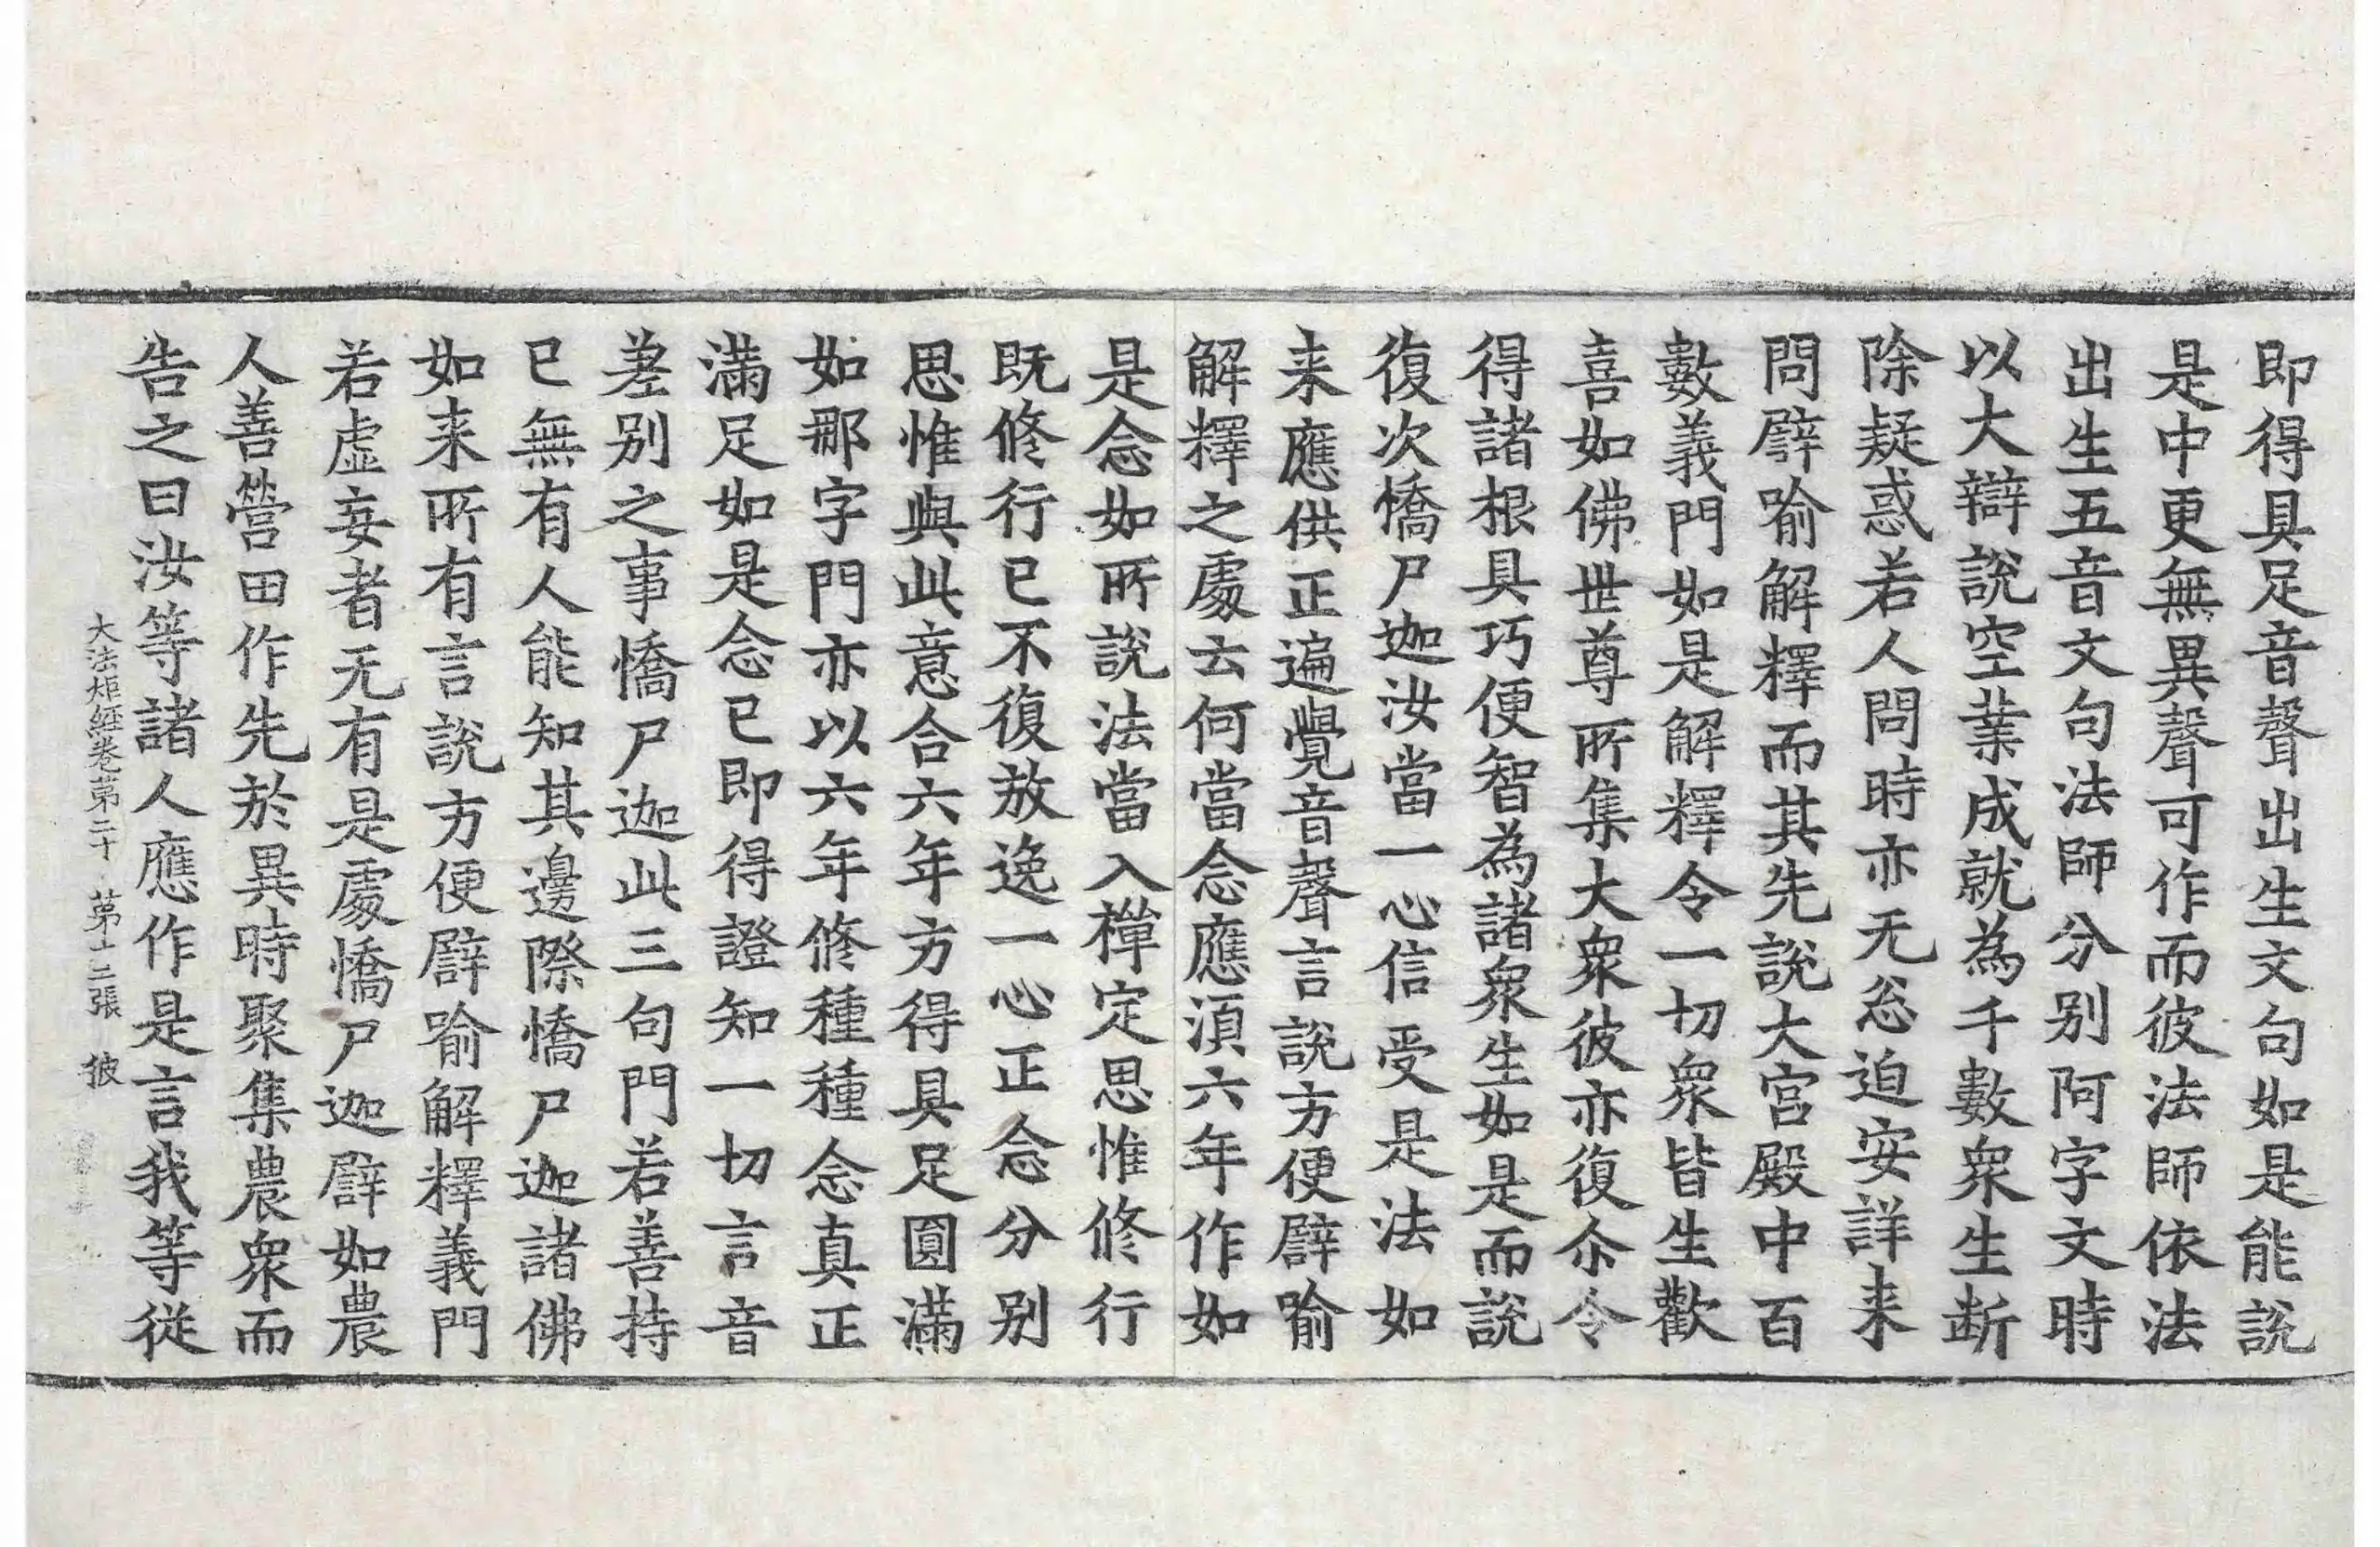 即得具足音聲出生文句如是能說
是中更無異聲可作而彼法師依法
出生五音文句法師分別阿字文時
以大辯說空業成就為千數衆生斷
除疑惑若人問時亦无忩迫安詳来
問譬喻解釋而其先說大宫殿中百
數義門如是解釋令一切衆皆生歡
喜如佛世尊所集大衆彼亦復尒令
得諸根具巧便智為諸衆生如是而說
復次憍尸迦汝當一心信受是法如
来應供正遍覺音聲言說方便譬喻
解釋之處云何當念應湏六年作如
是念如所說法當入禪定思惟修行
既修行已不復放逸一心正念分别
思惟與此意合六年方得具足圓滿
如那字門亦以六年修種種念真正
滿足如是念已即得證知一切言音
差别之事憍尸迦此三句門若善持
已無有人能知其邊際憍尸迦諸佛
如来所有言說方便譬喻解釋義門
若虛妄者无有是處憍尸迦譬如農
人善營田作先於異時聚集農衆而
告之曰汝等諸人應作是言我等從
大法炬經卷第二十 第十二張 彼